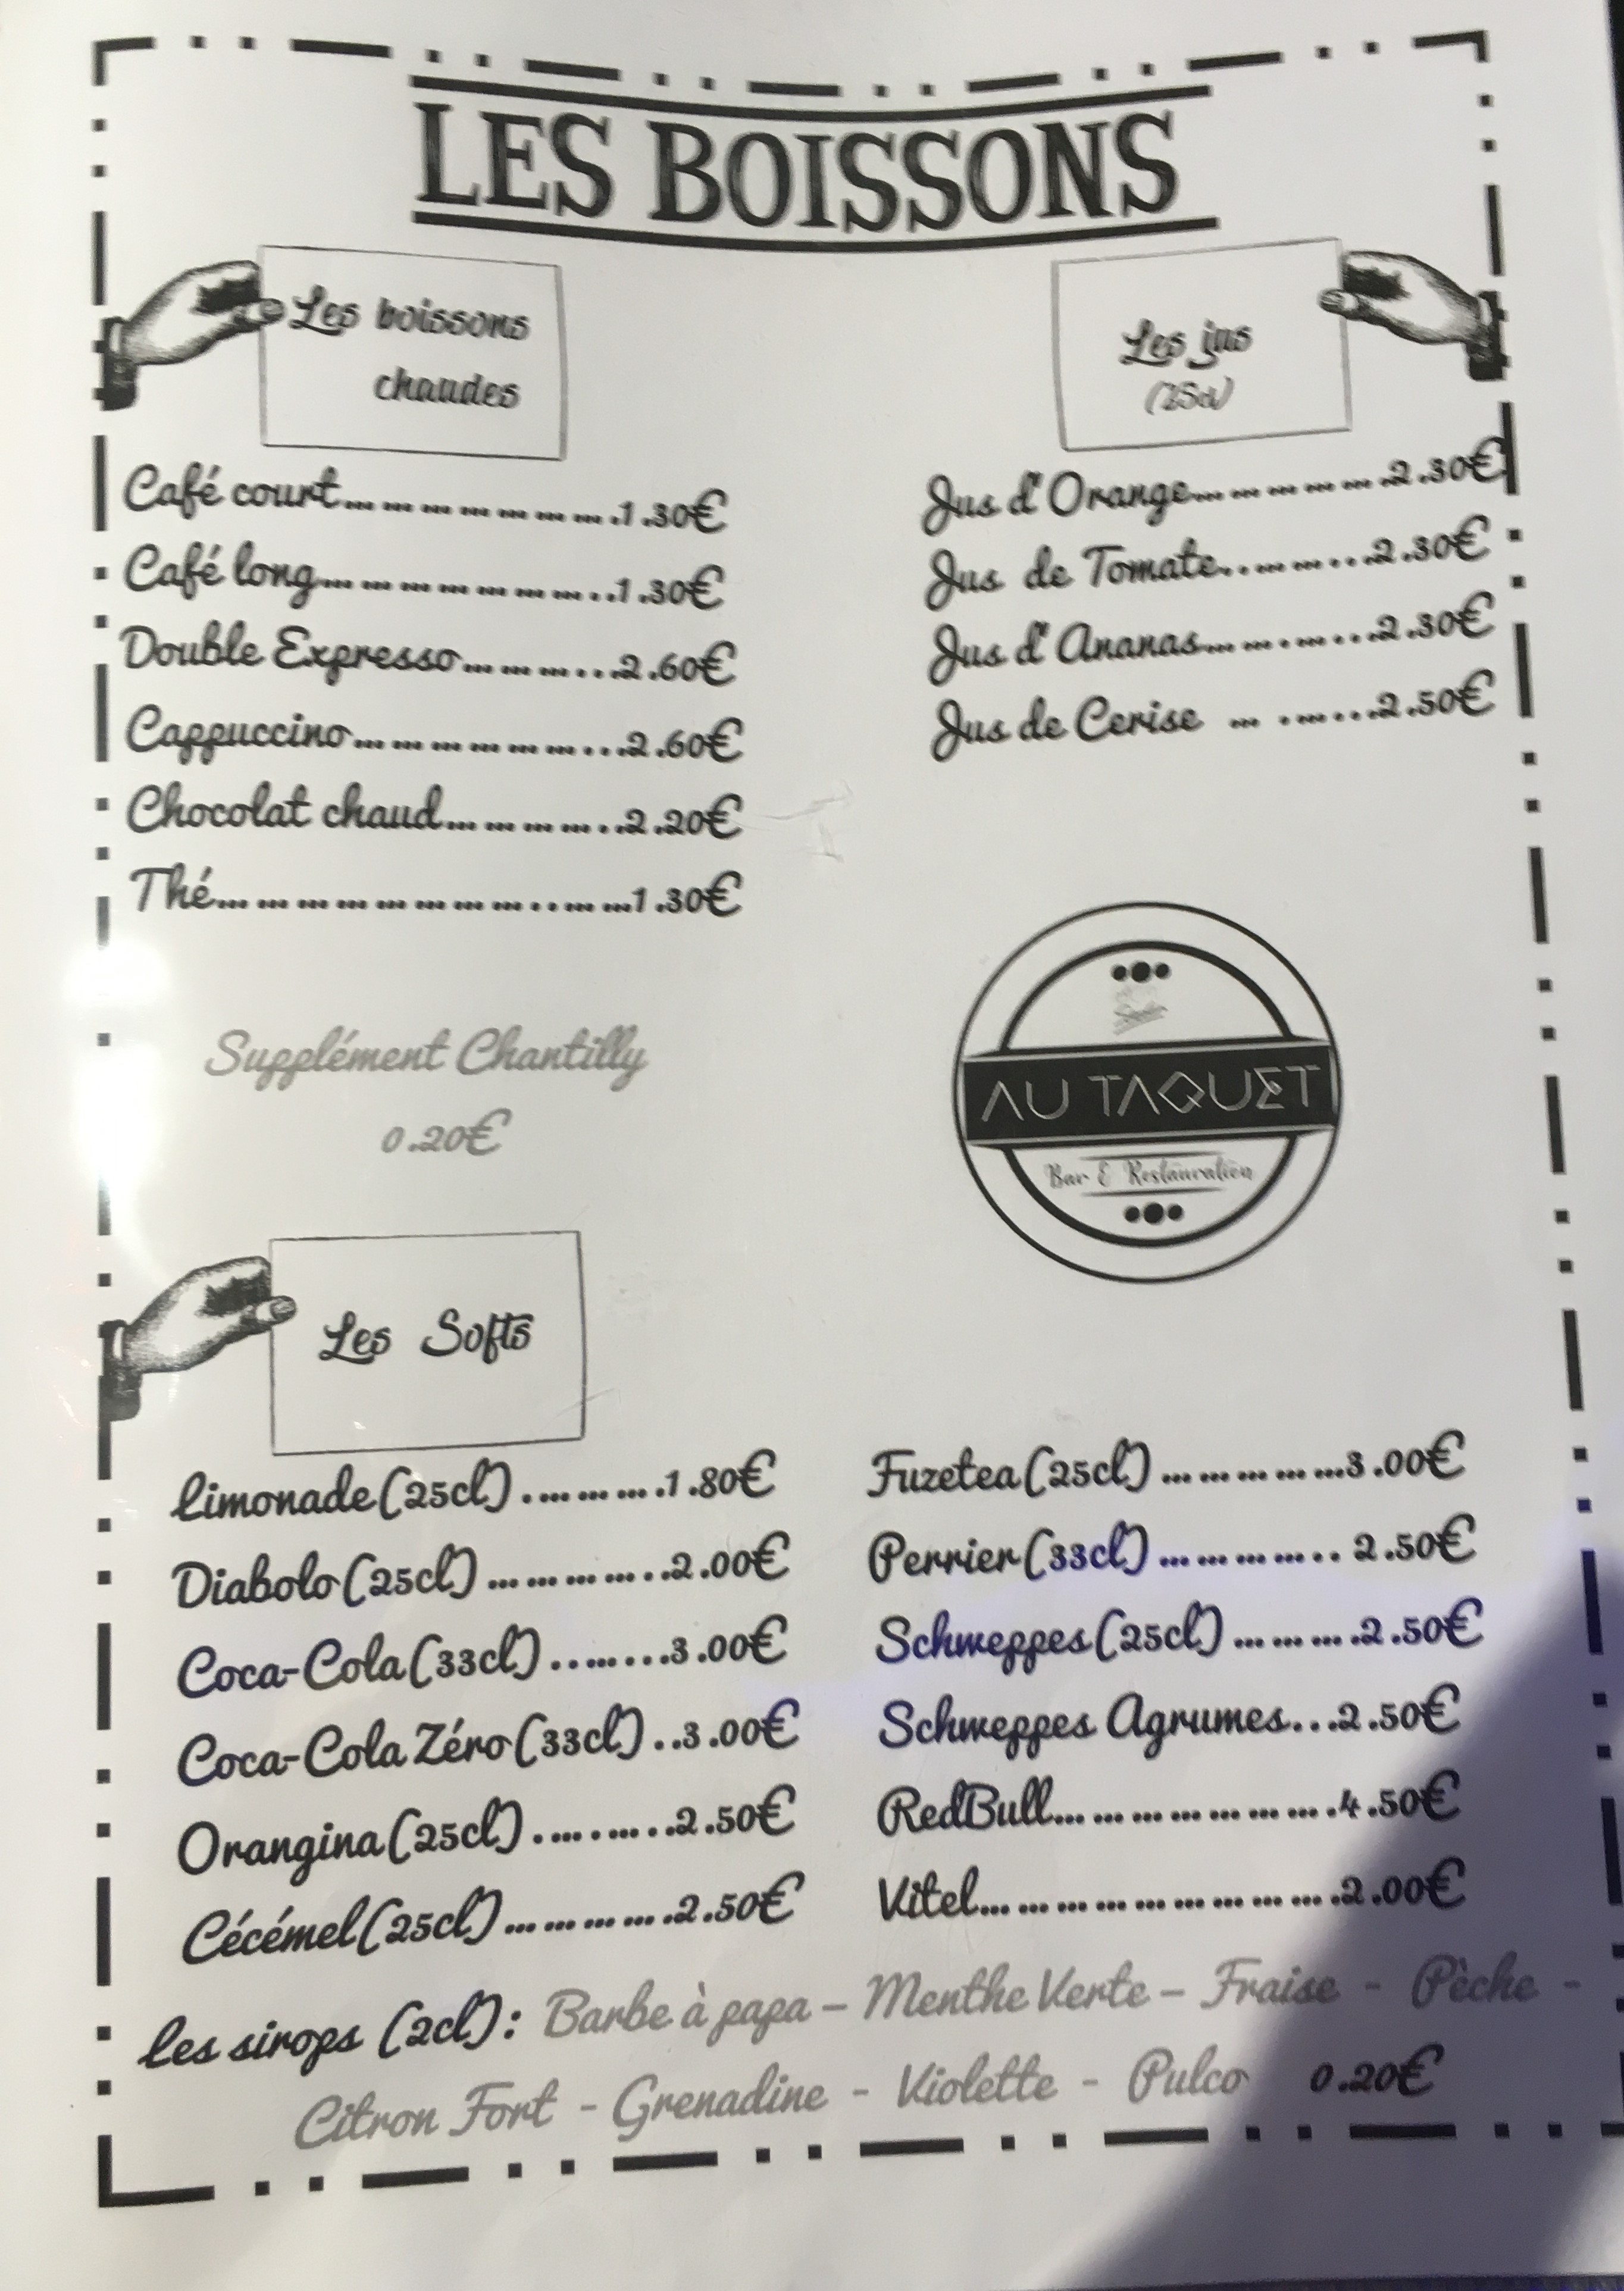 LES BOISSONS
Les boissons
chaudes
Café court.....................1.30€
Café long........................1.30€
Double Expresso............2.60€
Cappuccino.....................2.60€
Chocolat chaud..............2.20€
Thé.................................1.30€
Supplément Chantilly
0.20€
Les jus
(25cl)
Jus d'Orange................2.30€
Jus de Tomate............2.30€
Jus d'Ananas.............2.30€
Jus de Cerise ... .........2.50€
AU TAQUET
Bar & Restauration
Les Softs
Limonade(25cl)...........1.80€
Diabolo(25cl)..............2.00€
Coca-Cola(33cl).........3.00€
Coca-Cola Zéro(33cl)..3.00€
Orangina(25cl)...........2.50€
Cécémel(25cl).............2.50€
Fuzetea(25cl)...............3.00€
Perrier(33cl)..............2.50€
Schweppes(25cl)..........2.50€
Schweppes Agrumes...2.50€
RedBull......................4.50€
Vitel............................2.00€
les sirops (2cl): Barbe à papa - Menthe Verte - Fraise - Pèche -
Citron Fort - Grenadine - Violette - Pulco 0.20€